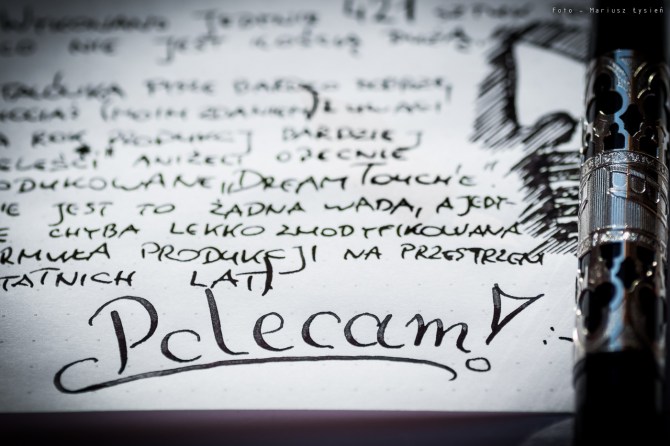 Foto - Mariusz Łysień
JEDYNIE 421 SZTUK
CO NIE JEST
STALÓWKA PISZE BARDZO
(MOIM ZDANIEM) Z UWAGI
ROK PRODUKCJI BARDZIEJ
ANIŻELI OBECNIE
ODUKOWANE „DREAM TOUCH'E".
JEST TO ŻADNA WADA, A JEDY-
E CHYBA LEKKO ZMODYFIKOWANA
RMUŁA PRODUKCJI NA PRZESTRZENI
TATNICH LAT
Polecam! :-